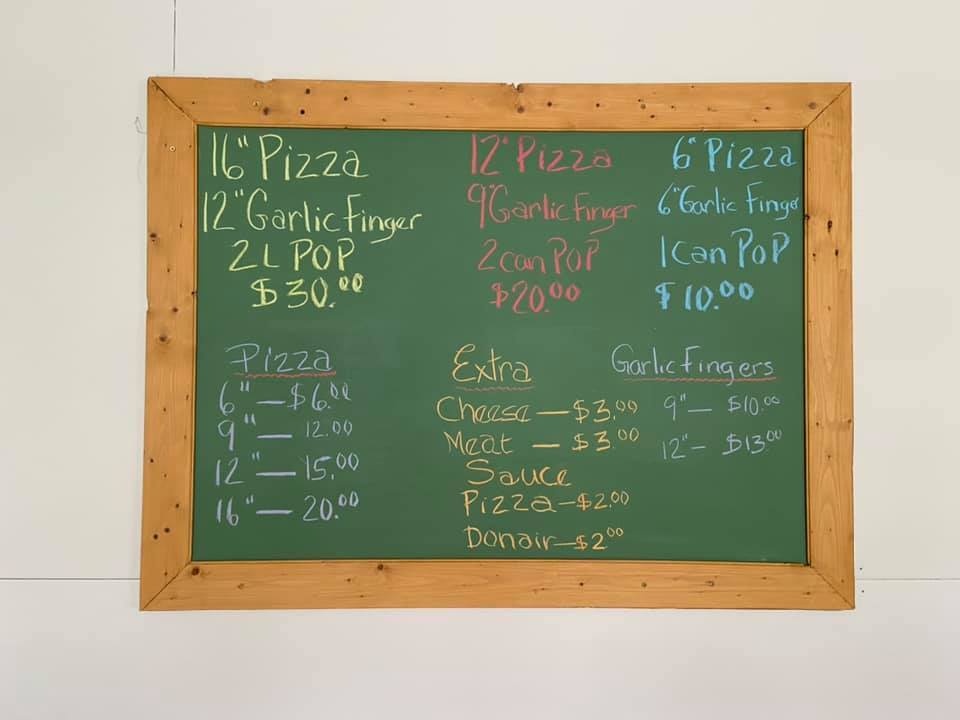 16" Pizza
12" Garlic Finger
2L POP
$30.00
12" Pizza
9" Garlic Finger
2 can POP
$20.00
6" Pizza
6" Garlic Finge
1 Can POP
$10.00
Pizza
6" — $6.00
9" — 12.00
12" — 15.00
16" — 20.00
Extra
Cheese — $3.00
Meat — $3.00
Sauce
Pizza — $2.00
Donair — $2.00
Garlic Fingers
9" — $10.00
12" — $13.00